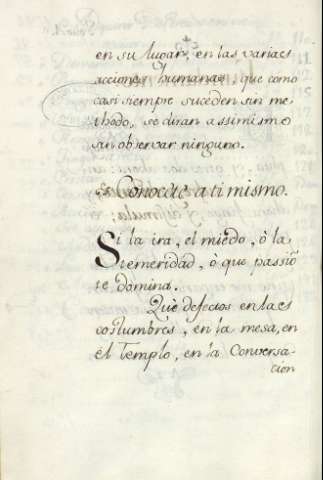 en su lugar, en las varias
acciones humanas que como
casi siempre suceden sin me
thodo, se diran assimismo
sin observar ninguno.
Conocete a ti mismo.
Si la ira, el miedo, ò la
temeridad, ò que passiõ
te domina.
Què defectos en las
costumbres, en la mesa, en
el Templo, en la Conversa-
cion